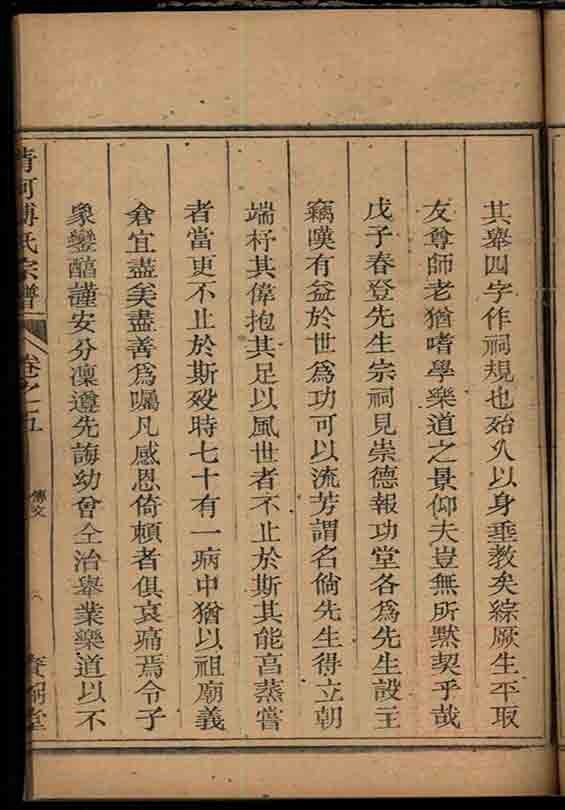 其舉四字作祠規也殆以身垂教矣綜厥生平取
友尊師老猶嗜學樂道之景仰夫豈無所默契乎哉
戊子春登先生宗祠見崇德報功堂各為先生設主
竊嘆有益於世為功可以流芳謂名倘先生得立朝
端杼其偉抱其足以風世者不止於斯其能高蒸嘗
者當更不止於斯歿時七十有一病中猶以祖廟義
倉宜盡美盡善為囑凡感恩倚賴者俱哀痛焉令子
象鑾醕謹安分凜遵先誨幼曾仝治舉業樂道以不
清河傅氏宗譜
卷之五
傳文
堂